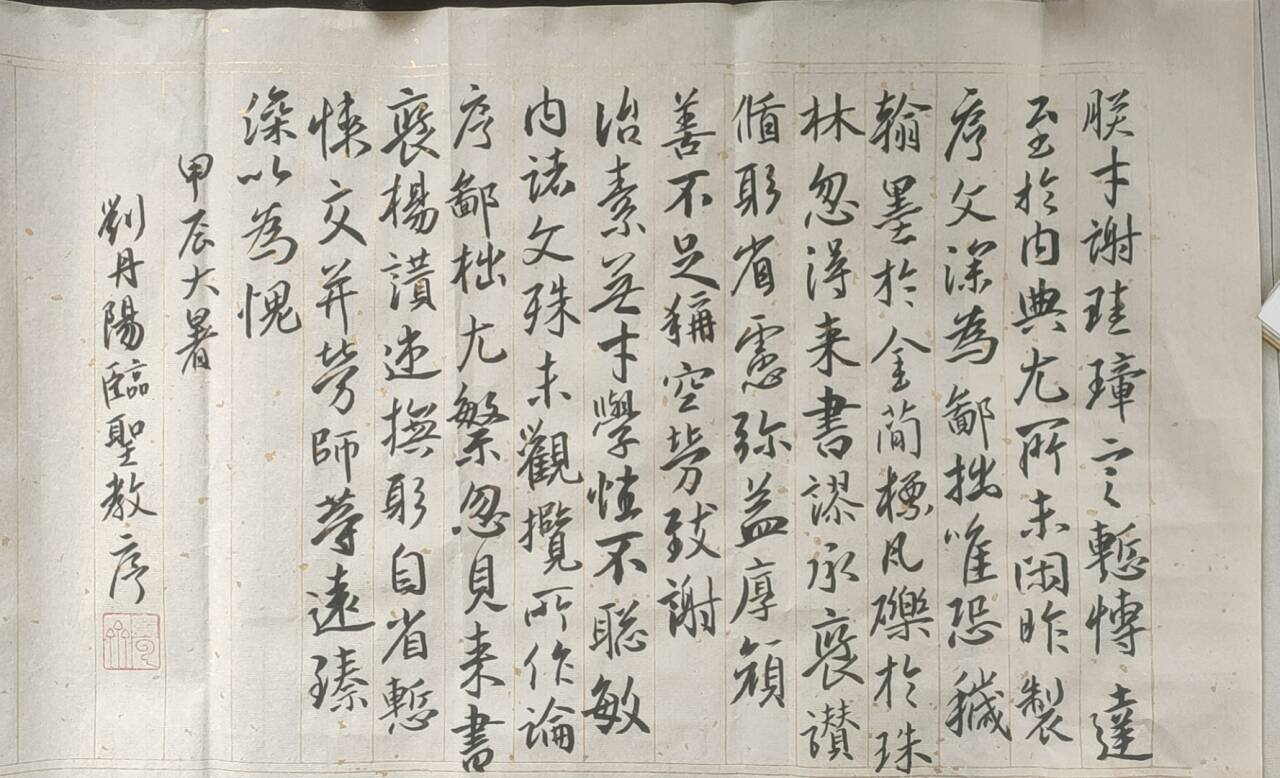 朕才謝珪璋言慙博達
至於內典尤所未閑昨製
序文深為鄙拙唯恐穢
翰墨於金簡標瓦礫於珠
林忽得来書謬承褒讚
循躬省慮弥益厚顔
善不足稱空勞致謝
治素無才學性不聡敏
内諸文殊未觀攬所作論
序鄙拙尤繁忽見来書
褒揚讃述撫躬自省慙
悚交并勞師等遠臻
深以為愧
甲辰大暑
劉丹陽臨聖教序